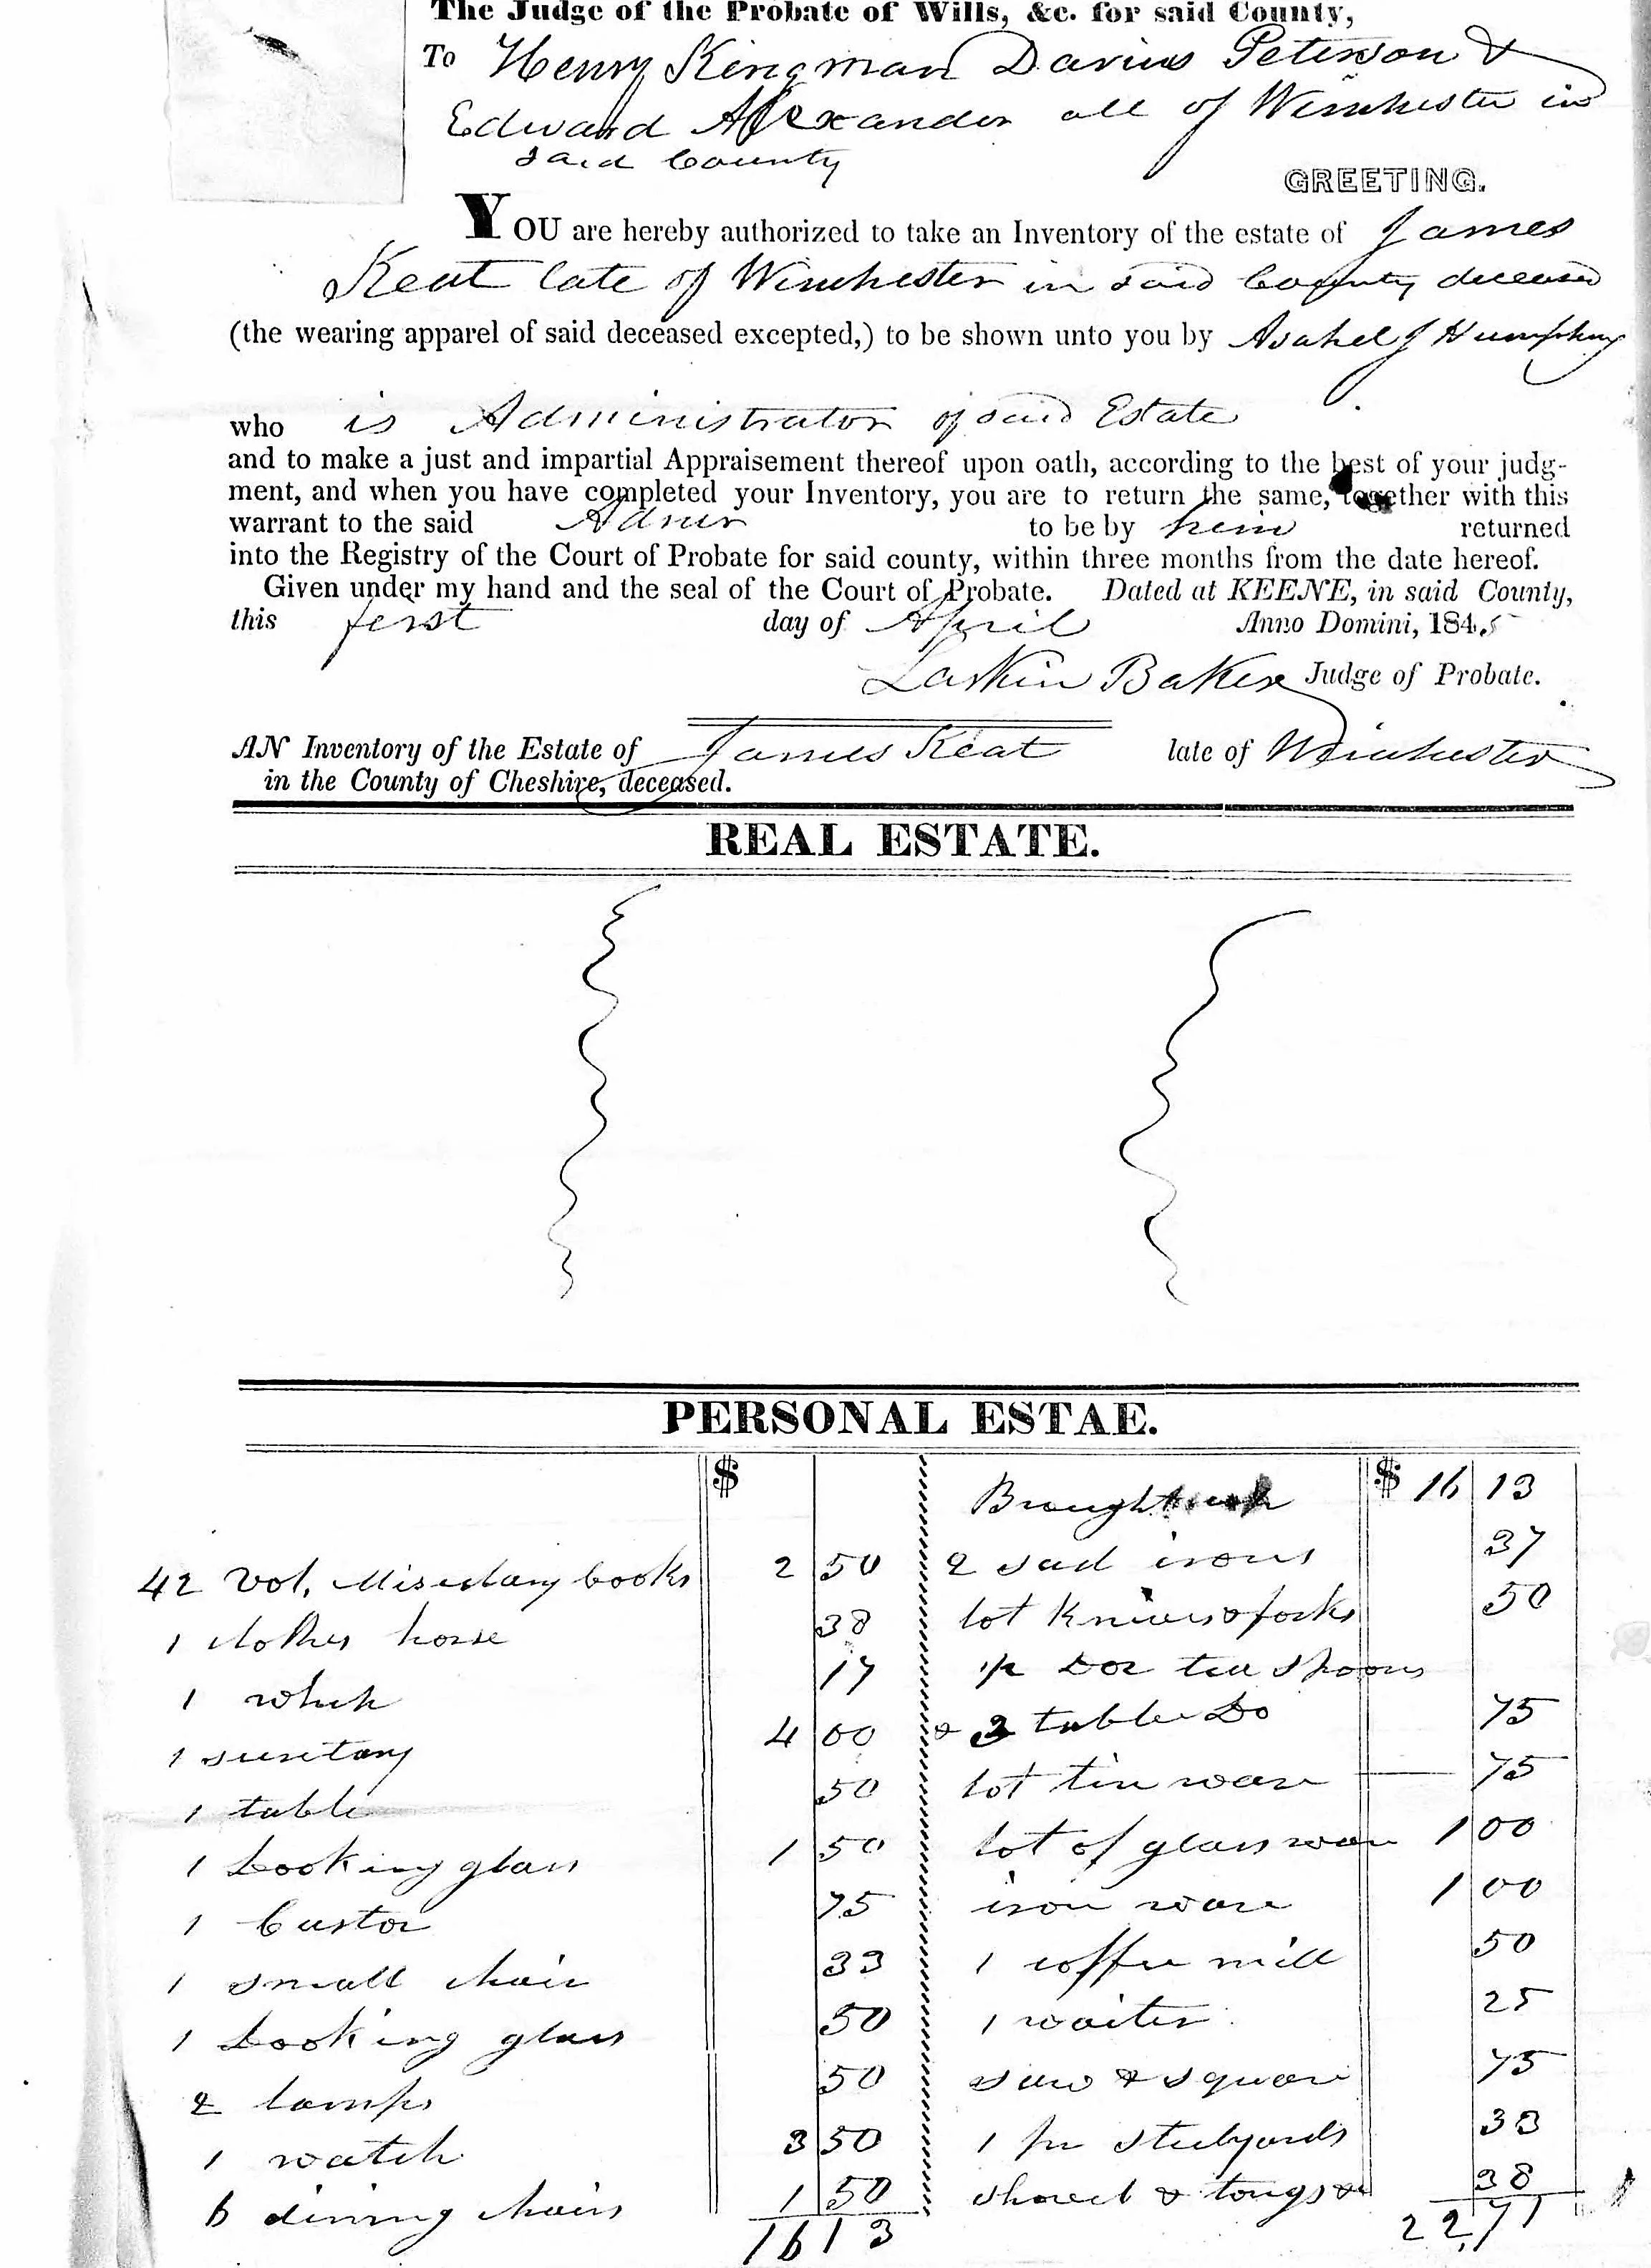 The Judge of the Probate of Wills, &c. for said County,
To Henry Kingman Darius Peterson &
Edward Alexander all of Winchester in
said County
GREETING.
YOU are hereby authorized to take an Inventory of the estate of James
Keat late of Winchester in said County deceased
(the wearing apparel of said deceased excepted,) to be shown unto you by Asahel J Humphrey
who is Administrator of said Estate
and to make a just and impartial Appraisement thereof upon oath, according to the best of your judg-
ment, and when you have completed your Inventory, you are to return the same, together with this
warrant to the said Admr to be by him returned
into the Registry of the Court of Probate for said county, within three months from the date hereof.
Given under my hand and the seal of the Court of Probate. Dated at KEENE, in said County,
this first day of April Anno Domini, 1845
Larkin Baker Judge of Probate.
AN Inventory of the Estate of James Keat late of Winchester
in the County of Cheshire, deceased.
REAL ESTATE.
PERSONAL ESTAE.
$
42 Vol. Miscelany books 2 50
1 clothes horse 38
1 17
1 secretary 4 00
1 table 50
1 Looking glass 1 50
1 Castor 75
1 small chair 33
1 Looking glass 50
2 lamps 50
1 watch 3 50
6 dining chairs 1 50
16 13
Brought $ 16 13
2 sad irons 37
lot Knives & forks 50
1/2 Doz tea spoons
& 3 table Do 75
lot tin ware 75
lot of glass ware 1 00
iron ware 1 00
1 coffee mill 50
1 waiter 25
saw & square 75
1 pr steelyards 33
shovel & tongs 38
22,71